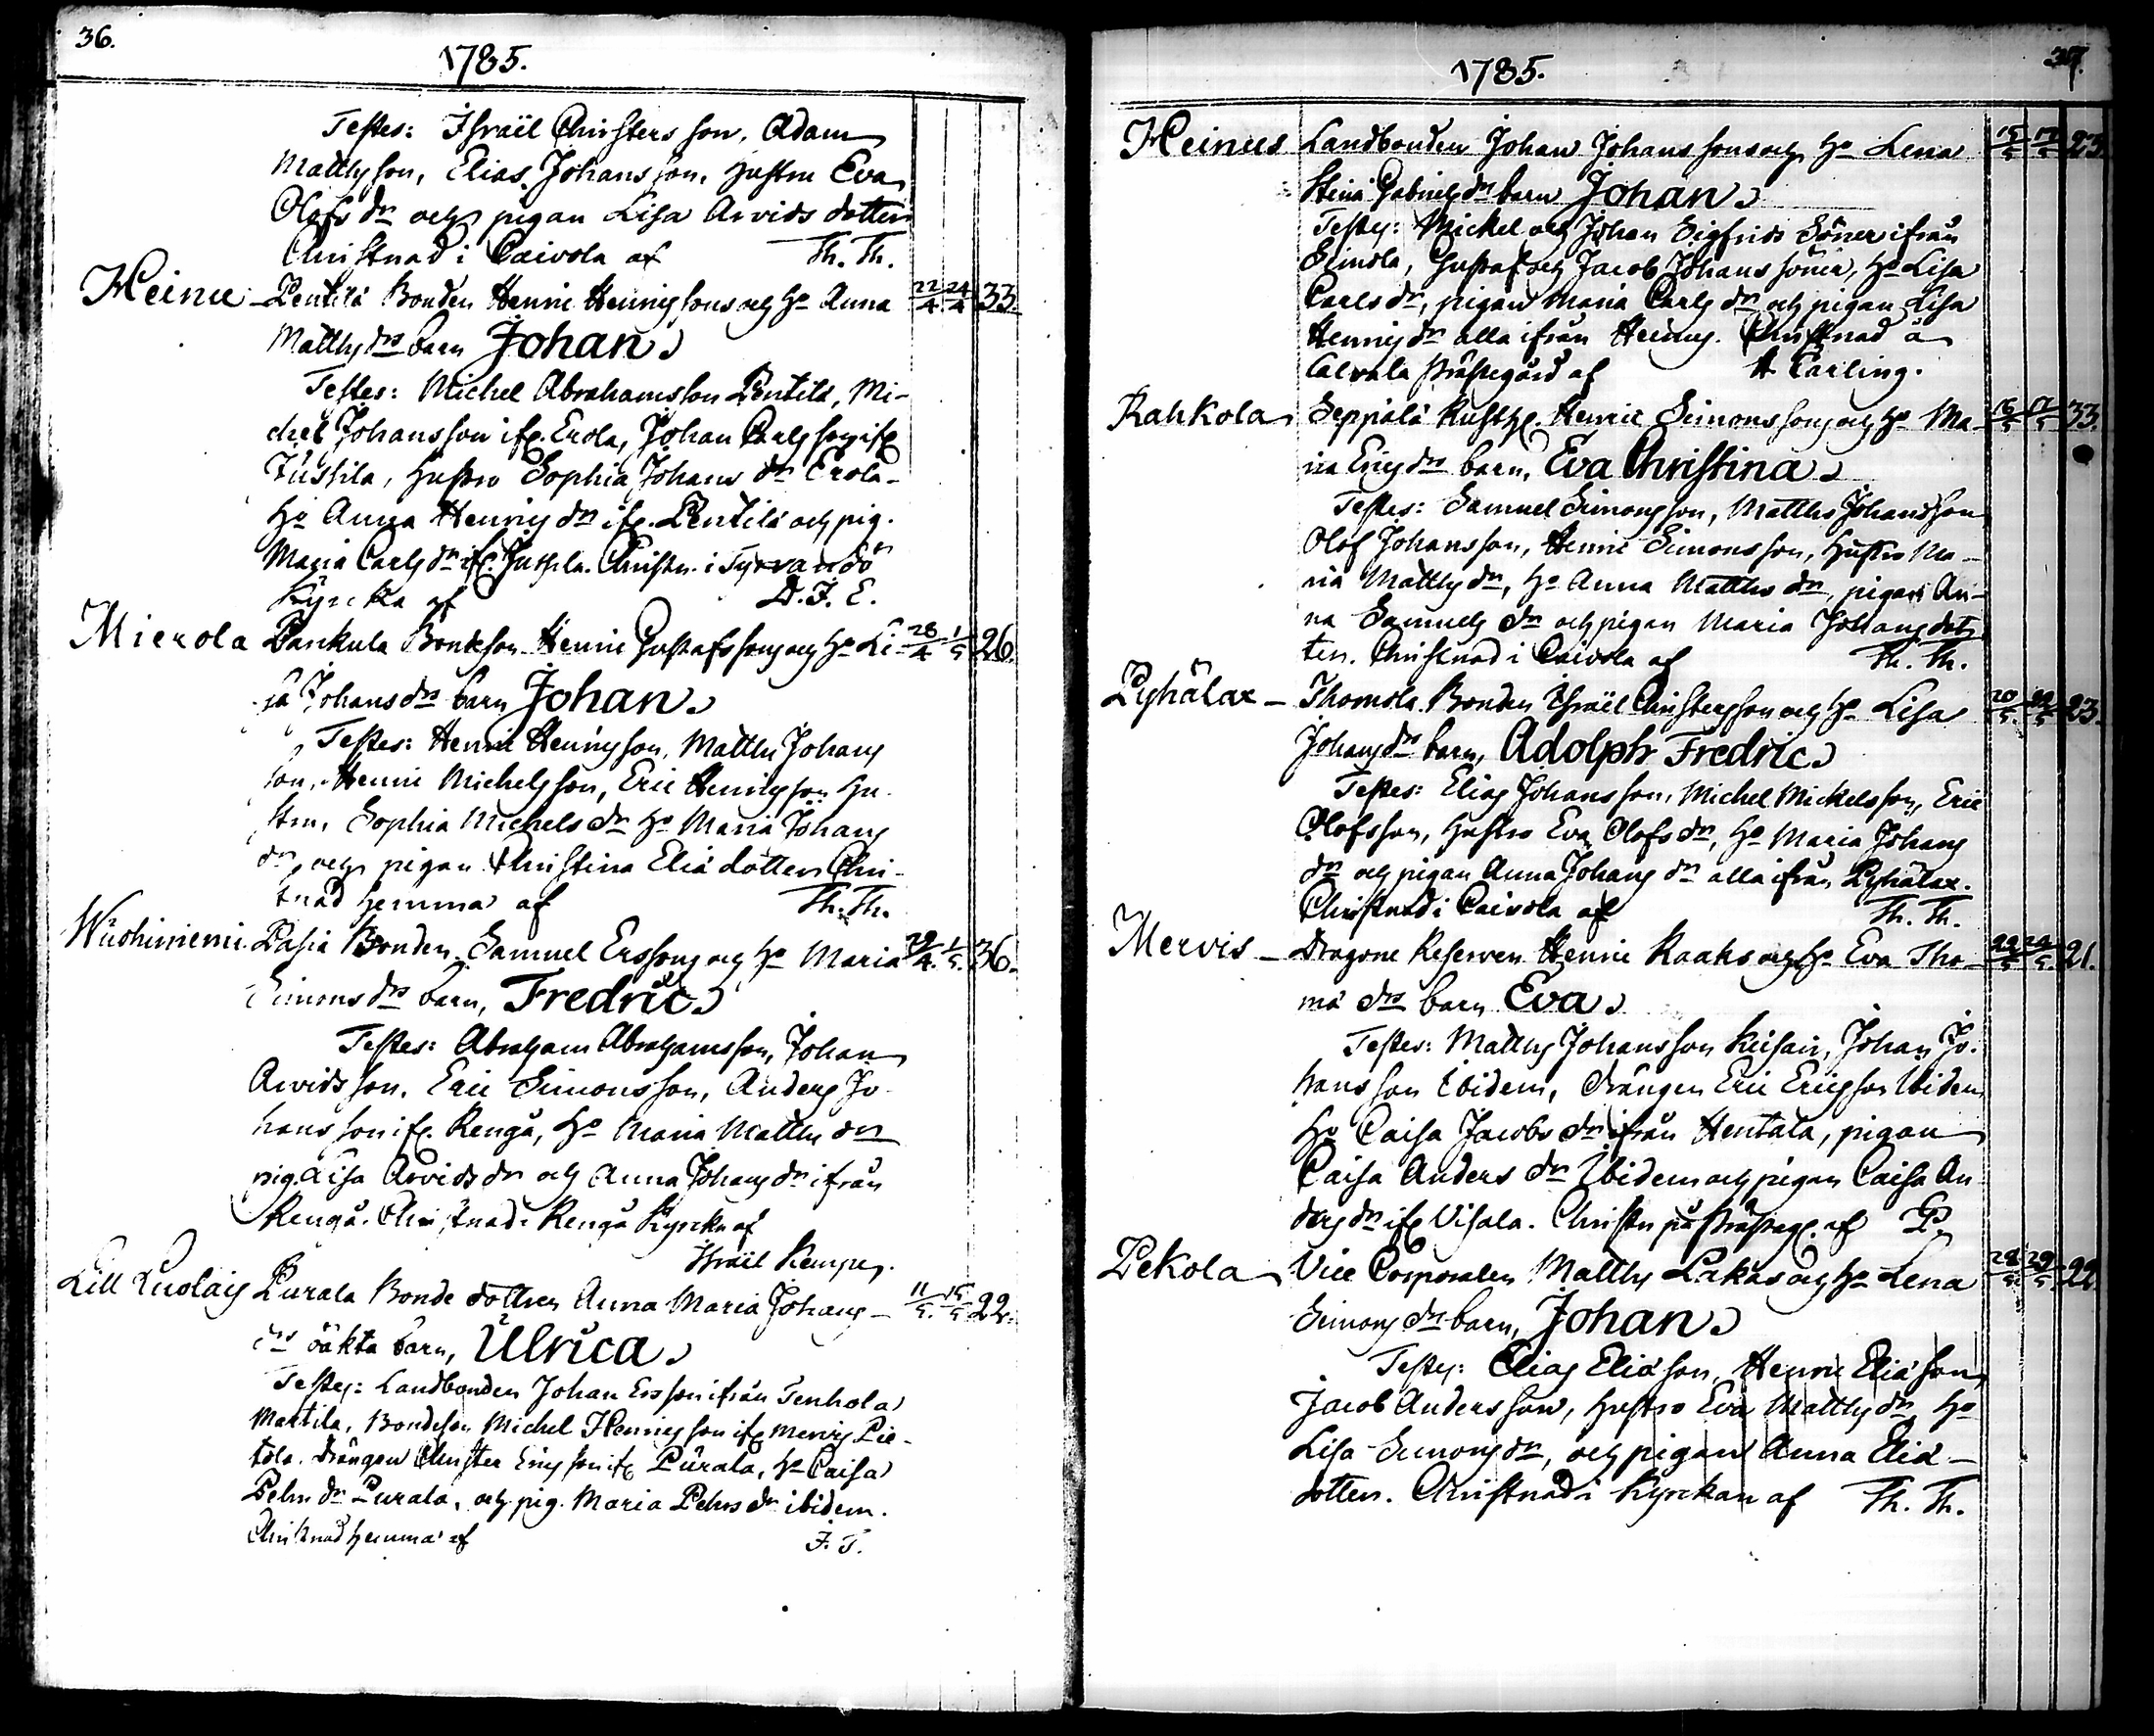 36.
1785.
Testes: Israël Christersson, Adam
Matthsson, Elias Johansson, hustru Eva
Olofs dr och pigan Lisa Arvids dotter
Christnad i Caivola af Th. Th.
Heinu - Pentilä Bonden Henric Henricssons och ho Anna 22/4 24/4 33.
Matths drs barn Johan.
Testes: Michel Abrahamsson Pentilä, Mi-
chel Johansson ifr. Erola, Johan Carlsson ifr
Jussila, hustru Sophia Johans dr Erola-
ho Anna Henrics dr ifr. Pentilä och pig.
Maria Carls dr ifr. Jussila. Christn. i Tyrvändö
Kyrcka af D. J. E.
Mierola Pankula Bondeson Henric Gustafssons och ho Li- 28/4 1/5 26.
sa Johans drs barn Johan.
Testes: Henric Henricsson, Matths Johans
son, Henric Michelsson, Eric Henricsson hu-
stru, Sophia Michels dr ho Maria Johans
dr, och pigan Christina Eliä dotter Chri-
tnad hemma af Th. Th.
Wuohiniemi. Pasia Bonden Samuel Erssons och ho Maria 29/4. 1/5. 36.
Simons drs barn, Fredric.
Testes: Abraham Abrahamsson, Johan
Arvidsson, Eric Simonsson, Anders Jo-
hansson ifr. Rengå, ho Maria Matths dr
pig. Lisa Arvids dr och Anna Johans dr ifrån
Rengå. Christnad i Rengå Kyrcka af
Israël Kempe.
Lill Luolais Purala Bonde dottren Anna Maria Johans - 11/5. 15/5 22.
drs oäkta barn, Ulrica.
Testes: Landbonden Johan Ersson ifrån Tenhola
Martila, Bondeson Michel Henricsson ifr Mervis Pie-
tola. drängen Christer Ericsson ifr Purala, ho Caisa
Pehrs dr Purala, och pig. Maria Pehrs dr ibidem.
Christnad hemma af J. T.
37.
1785.
Heinus Landbonden Johan Johanssons och ho Lena 15/5 17/5 23.
Stina Gabriels drs barn Johan.
Testes: Mickel och Johan Sigfrids Söner ifrån
Simola, Gustaf och Jacob Johans söner, ho Lisa
Carls dr, pigan Maria Carls dr och pigan Lisa
Henrics dr alla ifrån Heinus. Christnad å
Calvala Prästegård af A Carling.
Rahkola Seppälä Rusth. Henric Simonssons och ho Ma- 16/5 17/5 33.
ria Erics drs barn, Eva Christina.
Testes: Samuel Simonsson, Matths Johansson
Olof Johansson, Henric Simonsson, hustru Ma-
ria Matths dr, ho Anna Matths dr, pigan An-
na Samuels dr och pigan Maria Johans dot-
ter. Christnad i Caivola af Th. Th.
Pyhälax - Thomola Bonden Israël Christersson och ho Lisa 20/5. 22/5 23.
Johans drs barn, Adolph Fredric.
Testes: Elias Johansson, Michel Mickelsson, Eric
Olofsson, hustru Eva Olofs dr, ho Maria Johans
dr och pigan Anna Johans dr alla ifrån Pyhälax.
Christnad i Caivola af Th. Th.
Mervis - Dragone Reserven Henric Raaks och ho Eva Tho- 22/5 24/5. 21.
mä drs barn Eva.
Testes: Matths Johansson Keisari, Johan Jo-
hansson Ibidem, drängen Eric Ericsson Ibidem
Ho Caisa Jacobs dr ifrån Hentala, pigan
Caisa Anders dr Ibidem och pigan Caisa An-
ders dr ifr Visala. Christn på Prästeg. af P.
Pekola Vice Corporalen Matths Lakas och ho Lena 28/5. 29/5. 22.
Simons drs barn, Johan.
Testes: Elias Eliäson, Henric Eliäson,
Jacob Andersson, hustru Eva Matths dr, ho
Lisa Simons dr, och pigan Anna Eliä-
dotter. Christnad i Kyrckan af Th. Th.